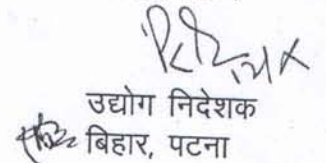 उद्योग निदेशक
बिहार, पटना